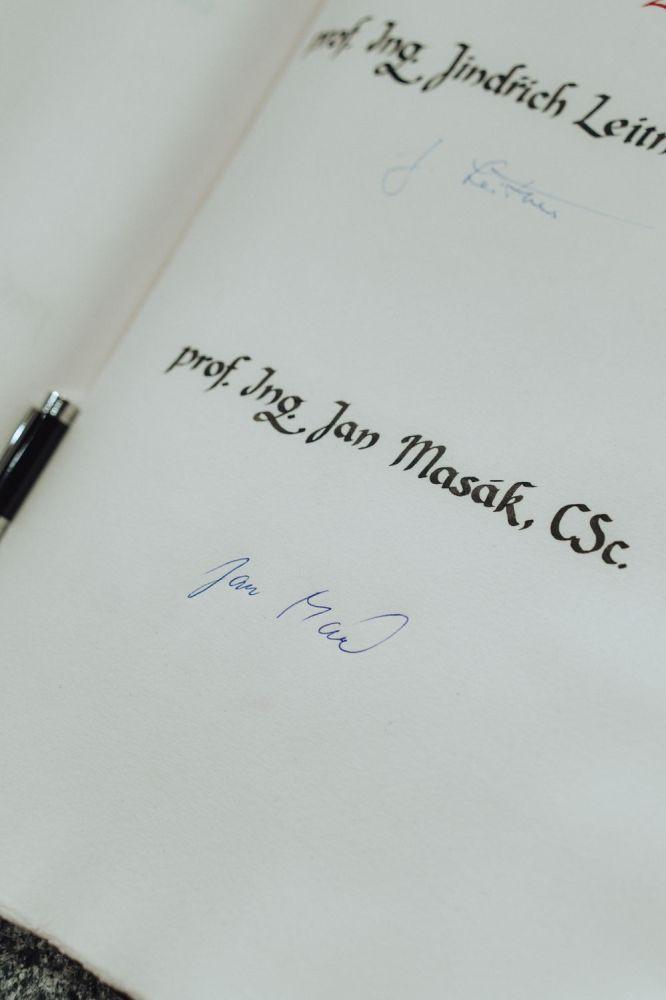 prof. Ing. Jindřich Leitn
J Leitner
prof. Ing. Jan Masák, CSc.
Jan